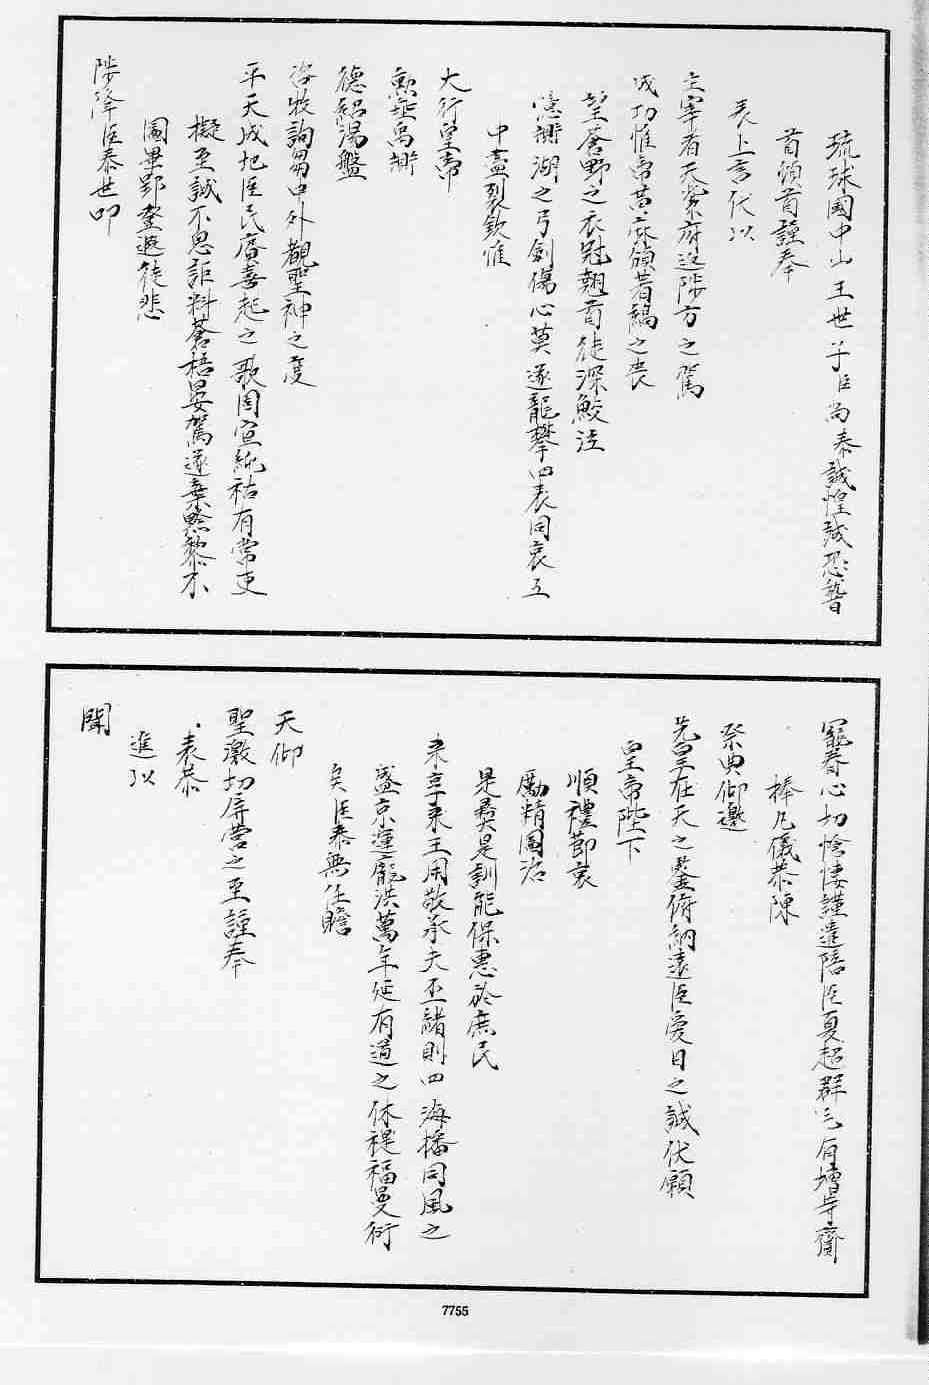 琉球國中山王世子臣尚泰誠惶誠恐稽
首頓首謹奉
表上言伏以
主宰有天紫府返陟方之駕
成功惟帝蒼麻領若縞之喪
望蒼野之衣冠翹首徒深鮫泣
憶鼎湖之弓劍傷心莫逐龍攀四表同哀五
中盡裂欽惟
大行皇帝
勲垂禹鼎
德銘湯盤
咨牧詢芻中外觀聖神之度
平天成地臣民賡喜起之歌固宜純祜有常更
擬至誠不息詎料蒼梧晏駕遂棄黔黎不
圖畢郢登遐徒悲
陟降臣泰世叨
寵眷心切愴悽謹遣陪臣夏超群毛有增等齎
捧凡儀恭陳
祭典仰邀
先皇在天之鑒俯納遠臣愛日之誠伏願
皇帝陛下
順禮節哀
勵精圖治
是彝是訓能保惠於庶民
來享來王用敬承夫丕緒則四海播同風之
盛京運龐洪萬年延有道之休禔福曼衍
矣臣泰無任瞻
天仰
聖激切屏營之至謹奉
表恭
進以
聞
7755